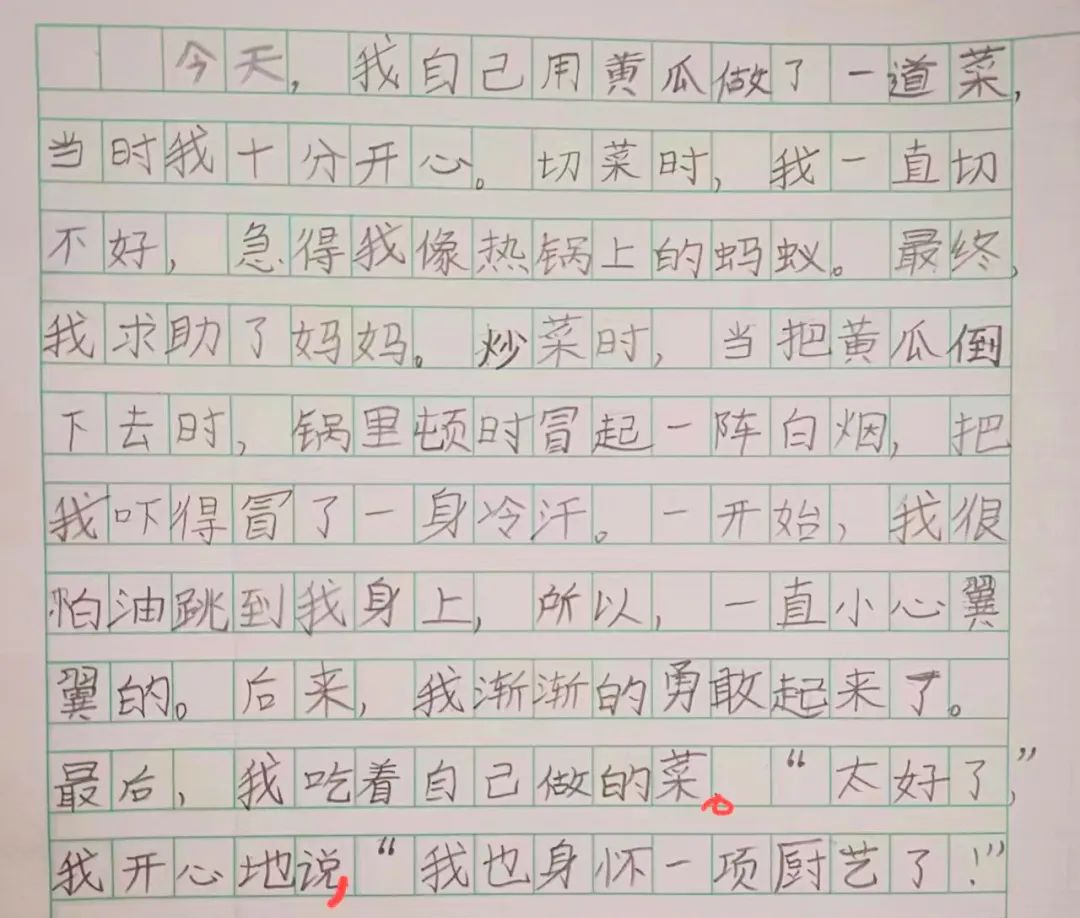 今天，我自己用黄瓜做了一道菜，
当时我十分开心。切菜时，我一直切
不好，急得我像热锅上的蚂蚁。最终，
我求助了妈妈。炒菜时，当把黄瓜倒
下去时，锅里顿时冒起一阵白烟，把
我吓得冒了一身冷汗。一开始，我很
怕油跳到我身上，所以，一直小心翼
翼的。后来，我渐渐的勇敢起来了。
最后，我吃着自己做的菜。“太好了，”
我开心地说，“我也身怀一项厨艺了！”